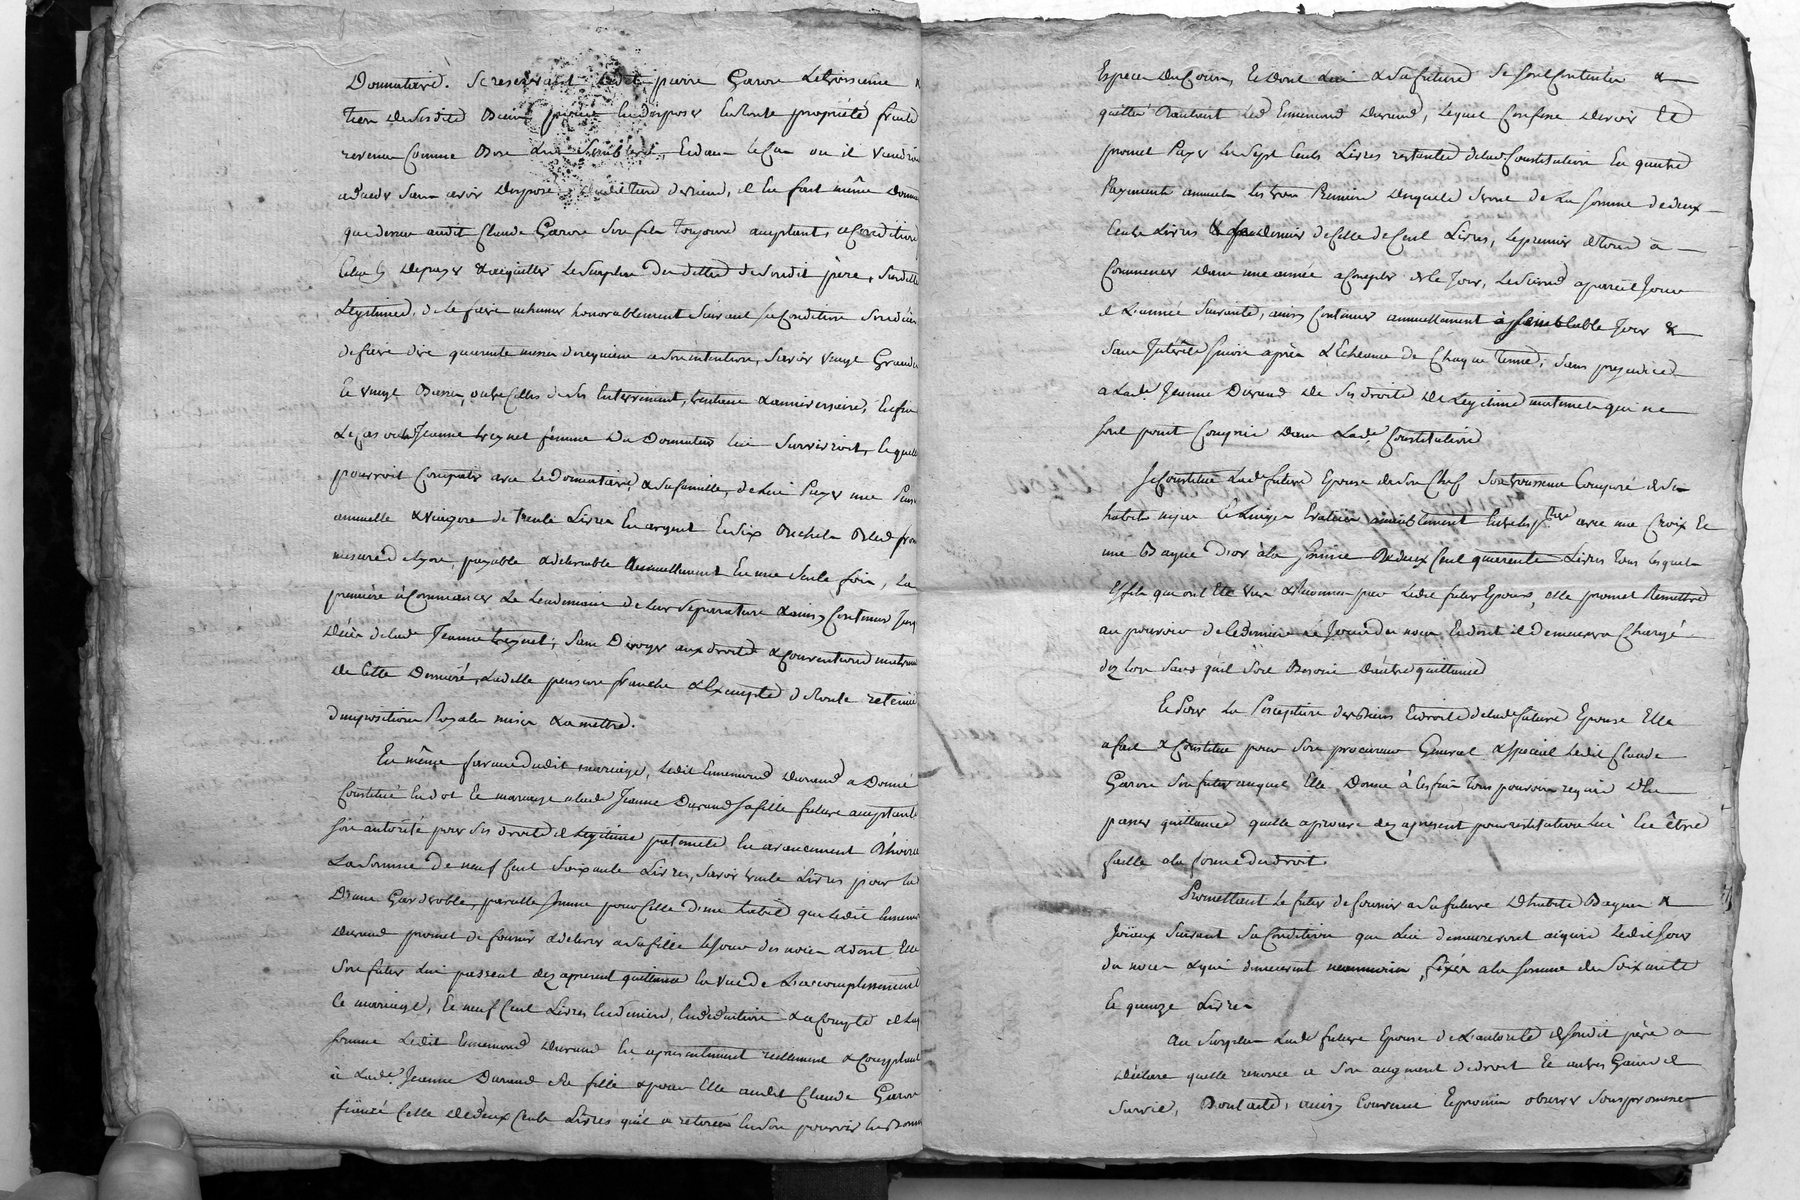 Donnataire. Se reservant ledit pierre Garon le troisieme &
tiers desdits Biens pour en disposer en toute propriété fruits
revenus comme Bon lui semblera, Et dans le cas ou il viendroit
a deceder sans avoir disposé, du tiers reservé, il en fait même Dona
que dessus audit Claude Garon son fils toujours acceptant, a Condition
celui cy de payer & acquitter le surplus des dettes de sondit père, sesdittes
Legitimes, de le faire inhumer honorablement suivant sa Condition Sondit
de faire dire quarante messes de requiem a son intention, savoir vingt Grandes
et vingt Basses, outre celles de ses Enterrement, trentieme & anniversaire, Enfin
le cas ou la Jeanne femme du Donnateur lui surviveroit, laquelle
pourroit Compatir avec le Donnataire, & sa famille, de lui payer une Pens
annuelle & viagere de trente Livres En argent En six Bichets Bled froment
mesure de Lyon, payable & delivrable Annuellement En une seule fois, la
premiere à Commencer le Lendemain de leur separation & ainsy continuer Jusq
Décès de lad Jeanne, sans Deroger aux droits & Conventions matrimo
de Cette Derniere, Laditte pension franche & Exempte de toute retenue
d'imposition Royale mises & a mettre.
En même faveur dudit mariage, ledit Ennemond Durand a Donné
Constitué En dot Et mariage a lad Jeanne Durand sa fille future acceptante
son autorité pour ses droits de Legitime paternelle En avancement d'hoirie
La Somme de neuf Cent Soixante Livres, Savoir trente Livres pour la
D'une Garderoble, pareille somme pour Celle d'un habit que ledit Ennemond
Durand promet de fournir & delivrer a sa fille le Jour des noces & dont Elle
Son futur lui passent dez apresent quittance En Vue de L'accomplissement
Ce mariage, Et neuf Cent Livres En deniers, En deduction & a Compte de lad
somme Ledit Ennemond Durand En a presentement reellement & Comptant
à Lad. Jeanne Durand Sa fille & pour Elle audit Claude Garon
fiancé Celle de deux Cents Livres qu'il a retirée En son pouvoir En Bonnes
Especes du Cours, Et Dont Lui & Sa future Se sont Contentés &
quitté D'autant Led Ennemond Durand, Lequel Confesse Devoir Et
promet Payer les Sept Cents Livres restantes de lad Constitution En quatre
Payements annuels les trois Premiers Desquels seront de La somme de deux
Cents Livres & le Dernier de Celle de Cent Livres, le premier desquels à
Commencer Dans une année a Compter de Ce Jour, Le Second a pareil Jour
de L'année Suivante, ainsy Continuer annuellement à Semblable Jour &
Sans Intérêts Sinon après L'Echeance de Chaque Terme, Sans prejudice
a Lade Jeanne Durand De Ses droits De Legitime maternels qui ne
sont point Compris Dans Lade Constitution
Se Constitue Lade future Epouse de Son Chef Son trousseau Composé de Ses
habits nipes & Linges Evalués amiablement Entre les pties avec une Croix Et
une Bague D'or à la Somme De deux Cent quarante Livres tous lesquels
Effets qui ont Eté Vus & Reconnus par Ledit futur Epoux, Elle promet Remettre
au pouvoir de Ce dernier Le Jour des noces Et dont il demeurera Chargé
dez Lors Sans qu'il Soit Besoin d'autre quittance
Et Pour La Perception des Biens Et droits de lade future Epouse Elle
a fait & Constitué pour Son procureur General & special Ledit Claude
Garon Son futur auquel Elle Donne à Ces fins tous pouvoirs requis D'En
passer quittance quelle aprouve dez apresent pour restitution Lui En être
faitte a la forme du droit.
Promettant Le futur de fournir a Sa future D'habits Bagues &
Joyaux Suivant Sa Condition qui Lui demeureront acquis Ledit Jour
du noces & qui demeurent neanmoins fixés a la Somme de Soixante
Et quinze Livres
Au Surplus Lade future Epouse de L'autorité de Sondit père a
Declaré quelle renonce a Son augment de droit Et autres Gains de
Survie, Dont acte, ainsy Convenu Et promis observer Sous promesses